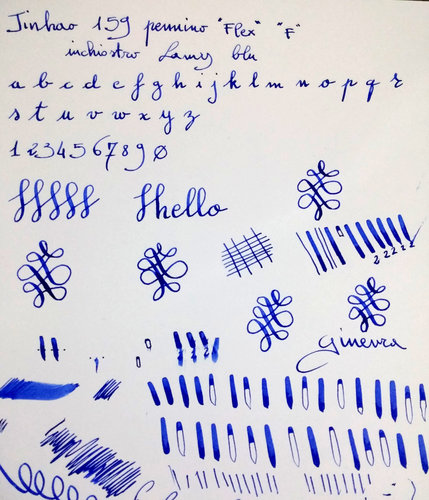 Jinhao 159 pennino "Flex" "F"
inchiostro Lamy blu
a b c d e f g h i j k l m n o p q r
s t u v w x y z
1 2 3 4 5 6 7 8 9 0
hello
2 2 2 2
2 2 2 2
Ginevra